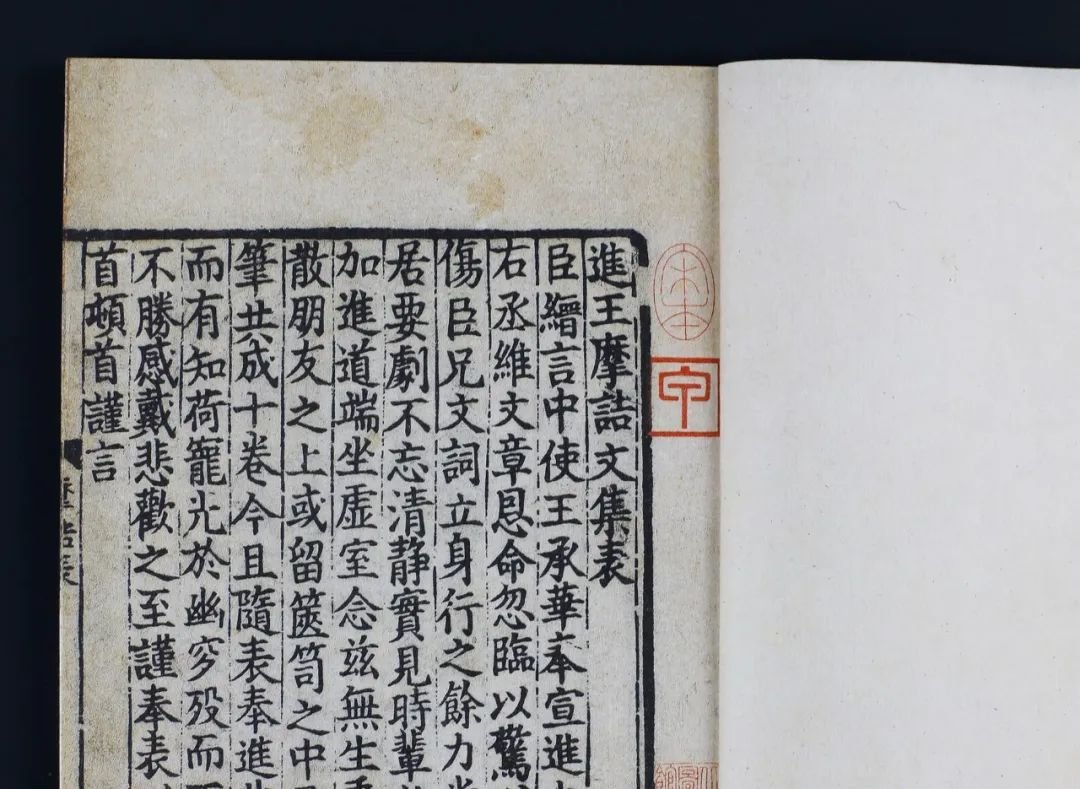 進王摩詰文集表
臣縉言中使王承華奉宣進
右丞維文章恩命忽臨以驚
傷臣兄文詞立身行之餘力
居要劇不忘清静實見時輩
加進道端坐虛室念兹無生
散朋友之上或留篋笥之中
筆共成十卷今且隨表奉進
而有知荷寵光於幽穸歿而
不勝感戴悲歡之至謹奉表
首頓首謹言
摩詰表
本